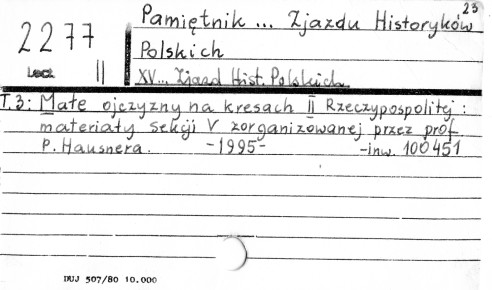 23
Pamiętnik ... Zjazdu Historyków
2277
Polskich
Lect. II
XV... Zjazd Hist. Polskich
T.3: Małe ojczyzny na kresach II Rzeczypospolitej:
materiały sekcji V zorganizowanej przez prof.
P. Hausnera. -1995- -inw. 100451
DUJ 507/80 10.000